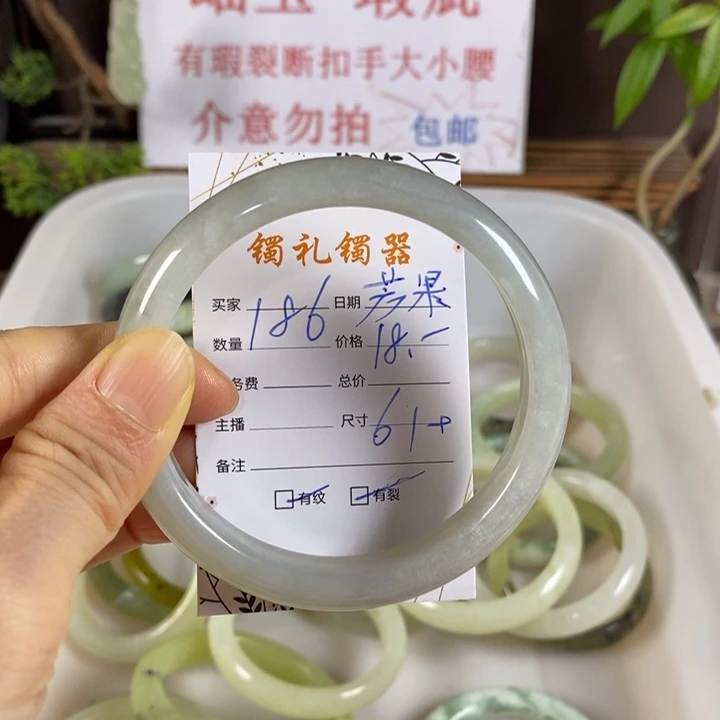 岫玉 瑕疵
有瑕裂断扣手大小腰
介意勿拍 包邮
镯礼镯器
买家 186 日期 芳果
数量 价格 18.-
务费 总价
主播 尺寸 61+
备注
有纹 有裂